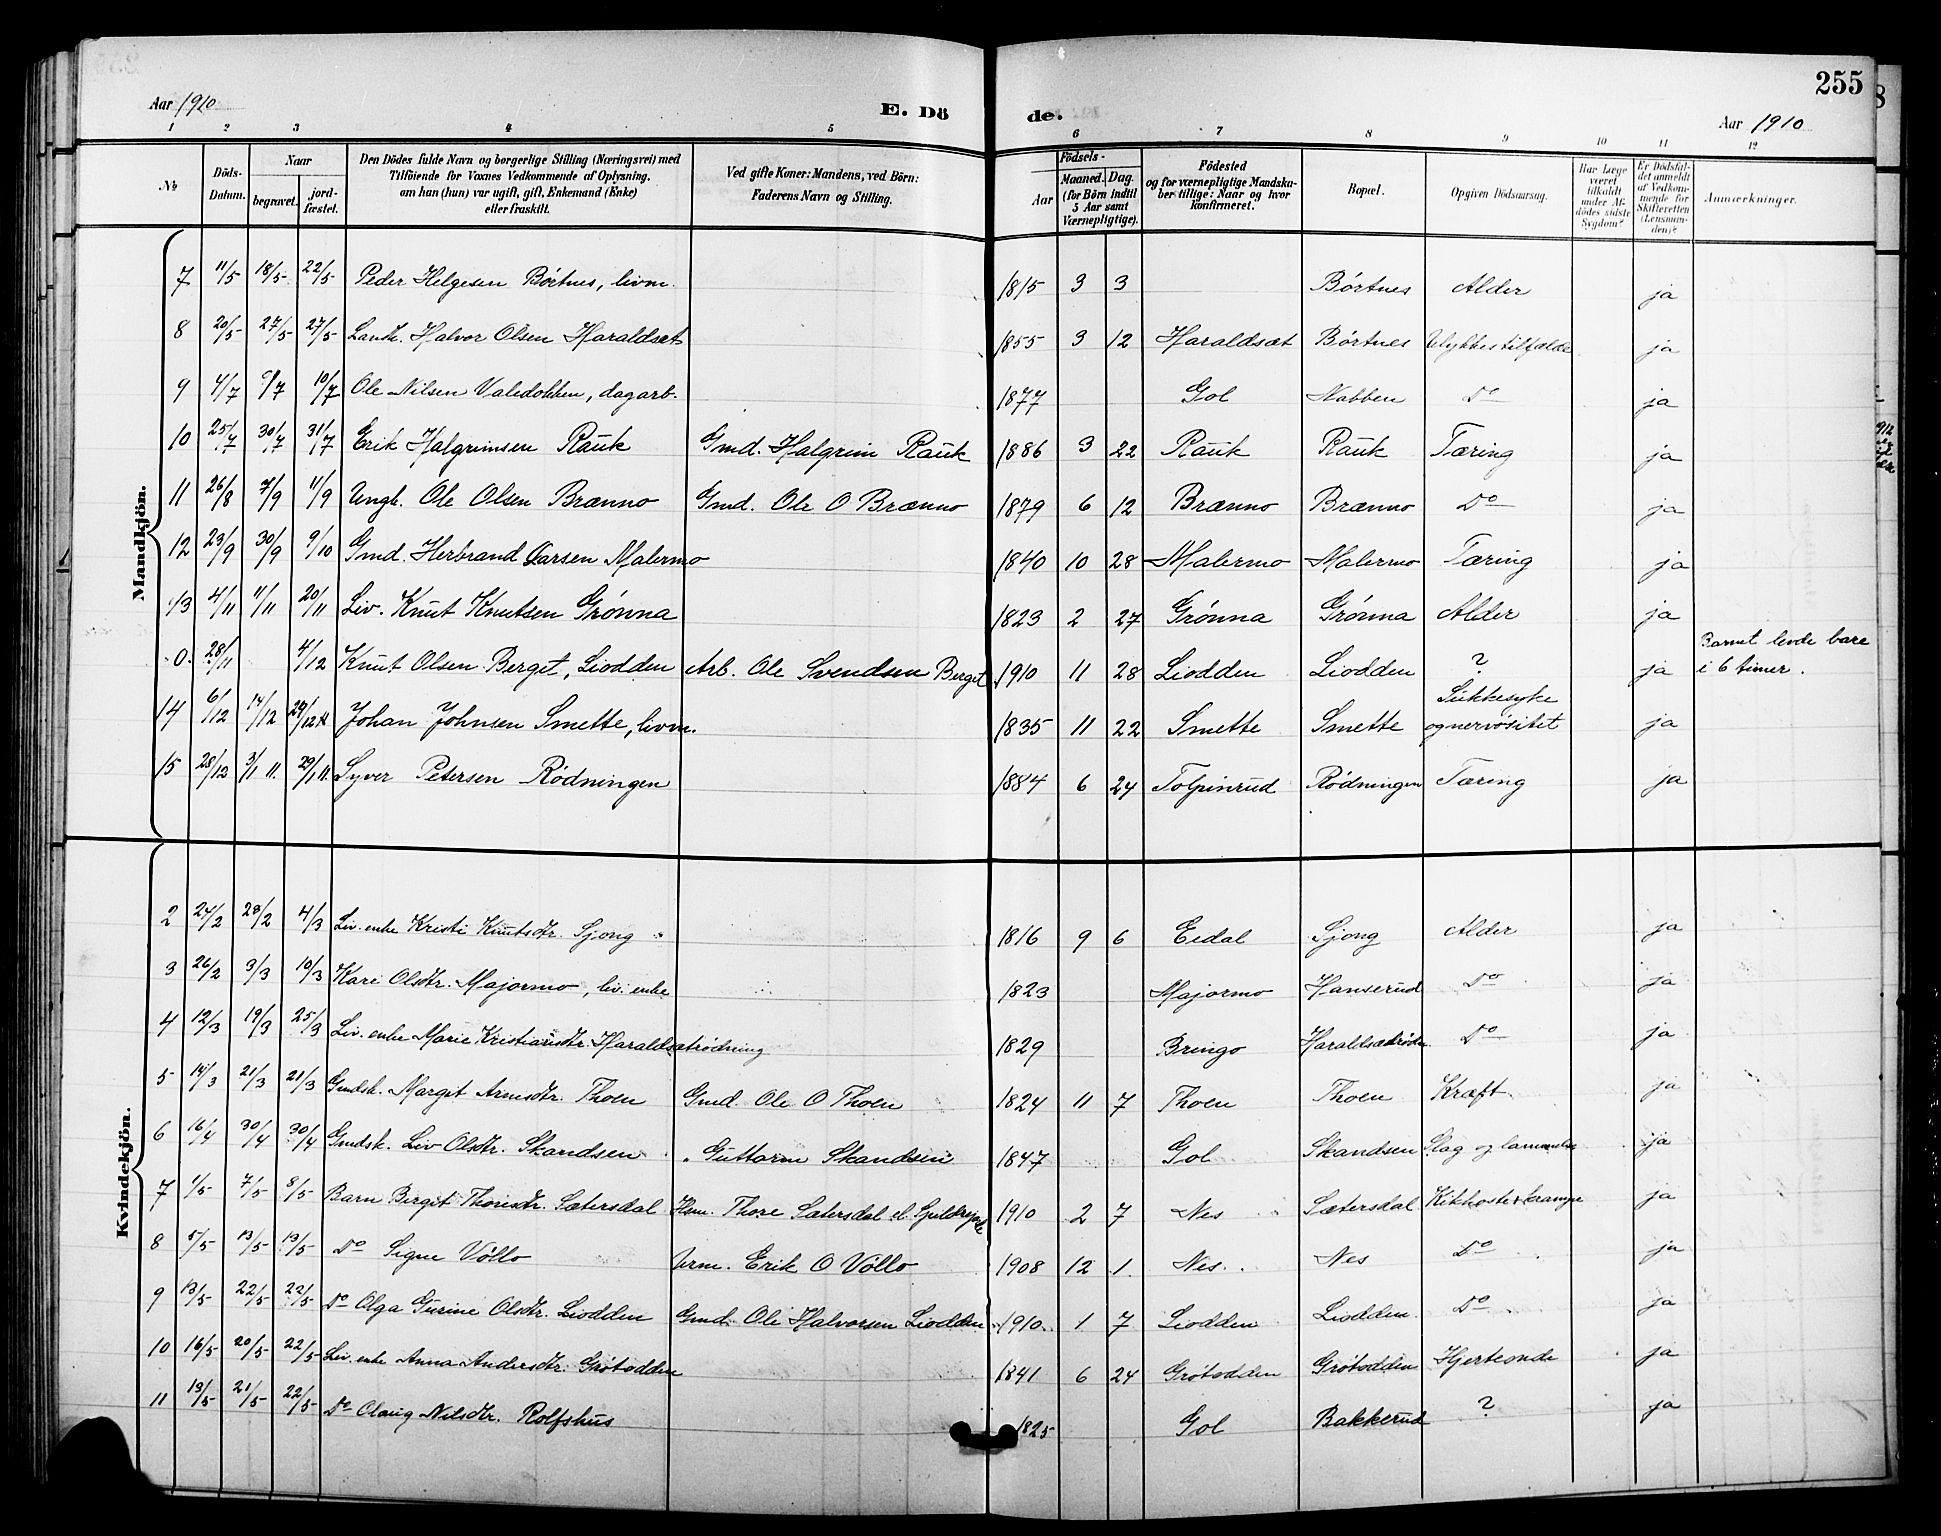 255
Aar 1910 E. Dö de. Aar 1910
1 2 3 4 5 6 7 8 9 10 11 12
No Döds-Datum. Naar begravet. jord-fæstet. Den Dödes fulde Navn og borgerlige Stilling (Næringsvei) med Tilföiende for Voxnes Vedkommende af Oplysning, om han (hun) var ugift, gift, Enkemand (Enke) eller fraskilt. Ved gifte Koner: Mandens, ved Börn: Faderens Navn og Stilling. Födsels- Aar Maaned. Dag (for Börn indtil 5 Aar samt Værnepligtige). Födested og for værnepligtige Mandskaber tillige: Naar og hvor konfirmeret. Bopæl. Opgiven Dödsaarsag. Har Læge været tilkaldt under Afdödes sidste Sygdom? Er Dödsfaldet anmeldt af Vedkommende for Skifteretten (Lensmanden)? Anmærkninger.
Mandkjön.
7 11/5 18/5 22/5 Peder Helgesen Børtnes, livm. 1815 3 3 Børtnes Alder ja
8 20/5 27/5 27/5 Landh. Halvor Olsen Haraldset 1855 3 12 Haraldsæt Børtnes Ulykkestilfælde ja
9 4/7 9/7 10/7 Ole Nilsen Valedokken, dagarb. 1877 Gol Nabben Do ja
10 25/7 30/7 31/7 Erik Halgrimsen Rauk Gmd. Halgrim Rauk 1886 3 22 Rauk Rauk Tæring ja
11 26/8 7/9 11/9 Ungk. Ole Olsen Brænno Gmd. Ole O Brænno 1879 6 12 Brænno Brænno Do ja
12 23/9 30/9 9/10 Gmd. Herbrand Larsen Malermo 1840 10 28 Malermo Malermo Tæring ja
13 4/11 11/11 20/11 Liv. Knut Knutsen Grønna 1823 2 27 Grønna Grønna Alder ja
0. 28/11 4/12 Knut Olsen Berget, Liodden Arb. Ole Svendsen Berget 1910 11 28 Liodden Liodden ? ja Barnet levde bare i 6 timer.
14 6/12 14/12 29/12 Johan Johnsen Smette, livm. 1835 11 22 Smette Smette Sukkesyke og nervøsitet ja
15 28/12 3/1 11. 29/1 11. Syver Petersen Rødningen 1884 6 24 Tolpinrud Rødningen Tæring ja
Kvindekjön.
2 24/2 28/2 4/3 Liv. enke Kristi Knutsdtr. Sjong 1816 9 6 Eidal Sjong Alder ja
3 26/2 3/3 10/3 Kari Olsdtr. Majormo, liv. enke 1823 Majormo Hanserud Do ja
4 12/3 19/3 25/3 Liv. enke Marie Kristiansdtr. Haraldsætrødning 1829 Bringo Do ja
5 14/3 21/3 21/3 Gmdsk. Margit Arnesdtr. Thoen Gmd. Ole O Thoen 1824 11 7 Thoen Thoen Kræft ja
6 16/4 30/4 30/4 Gmdsk. Liv Olsdtr. Skandsen " Guttorm Skandsen 1847 Gol Skandsen Slag og lammelse ja
7 1/5 7/5 8/5 Barn Birgit Thoresdtr. Sætersdal Hsm. Thore Sætersdal el. 1910 2 7 Nes Sætersdal Kikhoste & krampe ja
8 5/5 13/5 13/5 Do Signe Vøllo Urm. Erik O Vøllo 1908 12 1 Nes Nes Do ja
9 13/5 22/5 22/5 Do Olga Gurine Olsdtr. Liodden Gmd. Ole Halvorsen Liodden 1910 1 7 Liodden Liodden Do ja
10 16/5 20/5 22/5 Liv. enke Anna Andersdtr. Grøtodden 1841 6 24 Grøtodden Grøtodden Hjerteonde ja
11 13/5 21/5 22/5 Do Olaug Nilsdtr. Rolfshus 1825 Gol Bakkerud ? ja